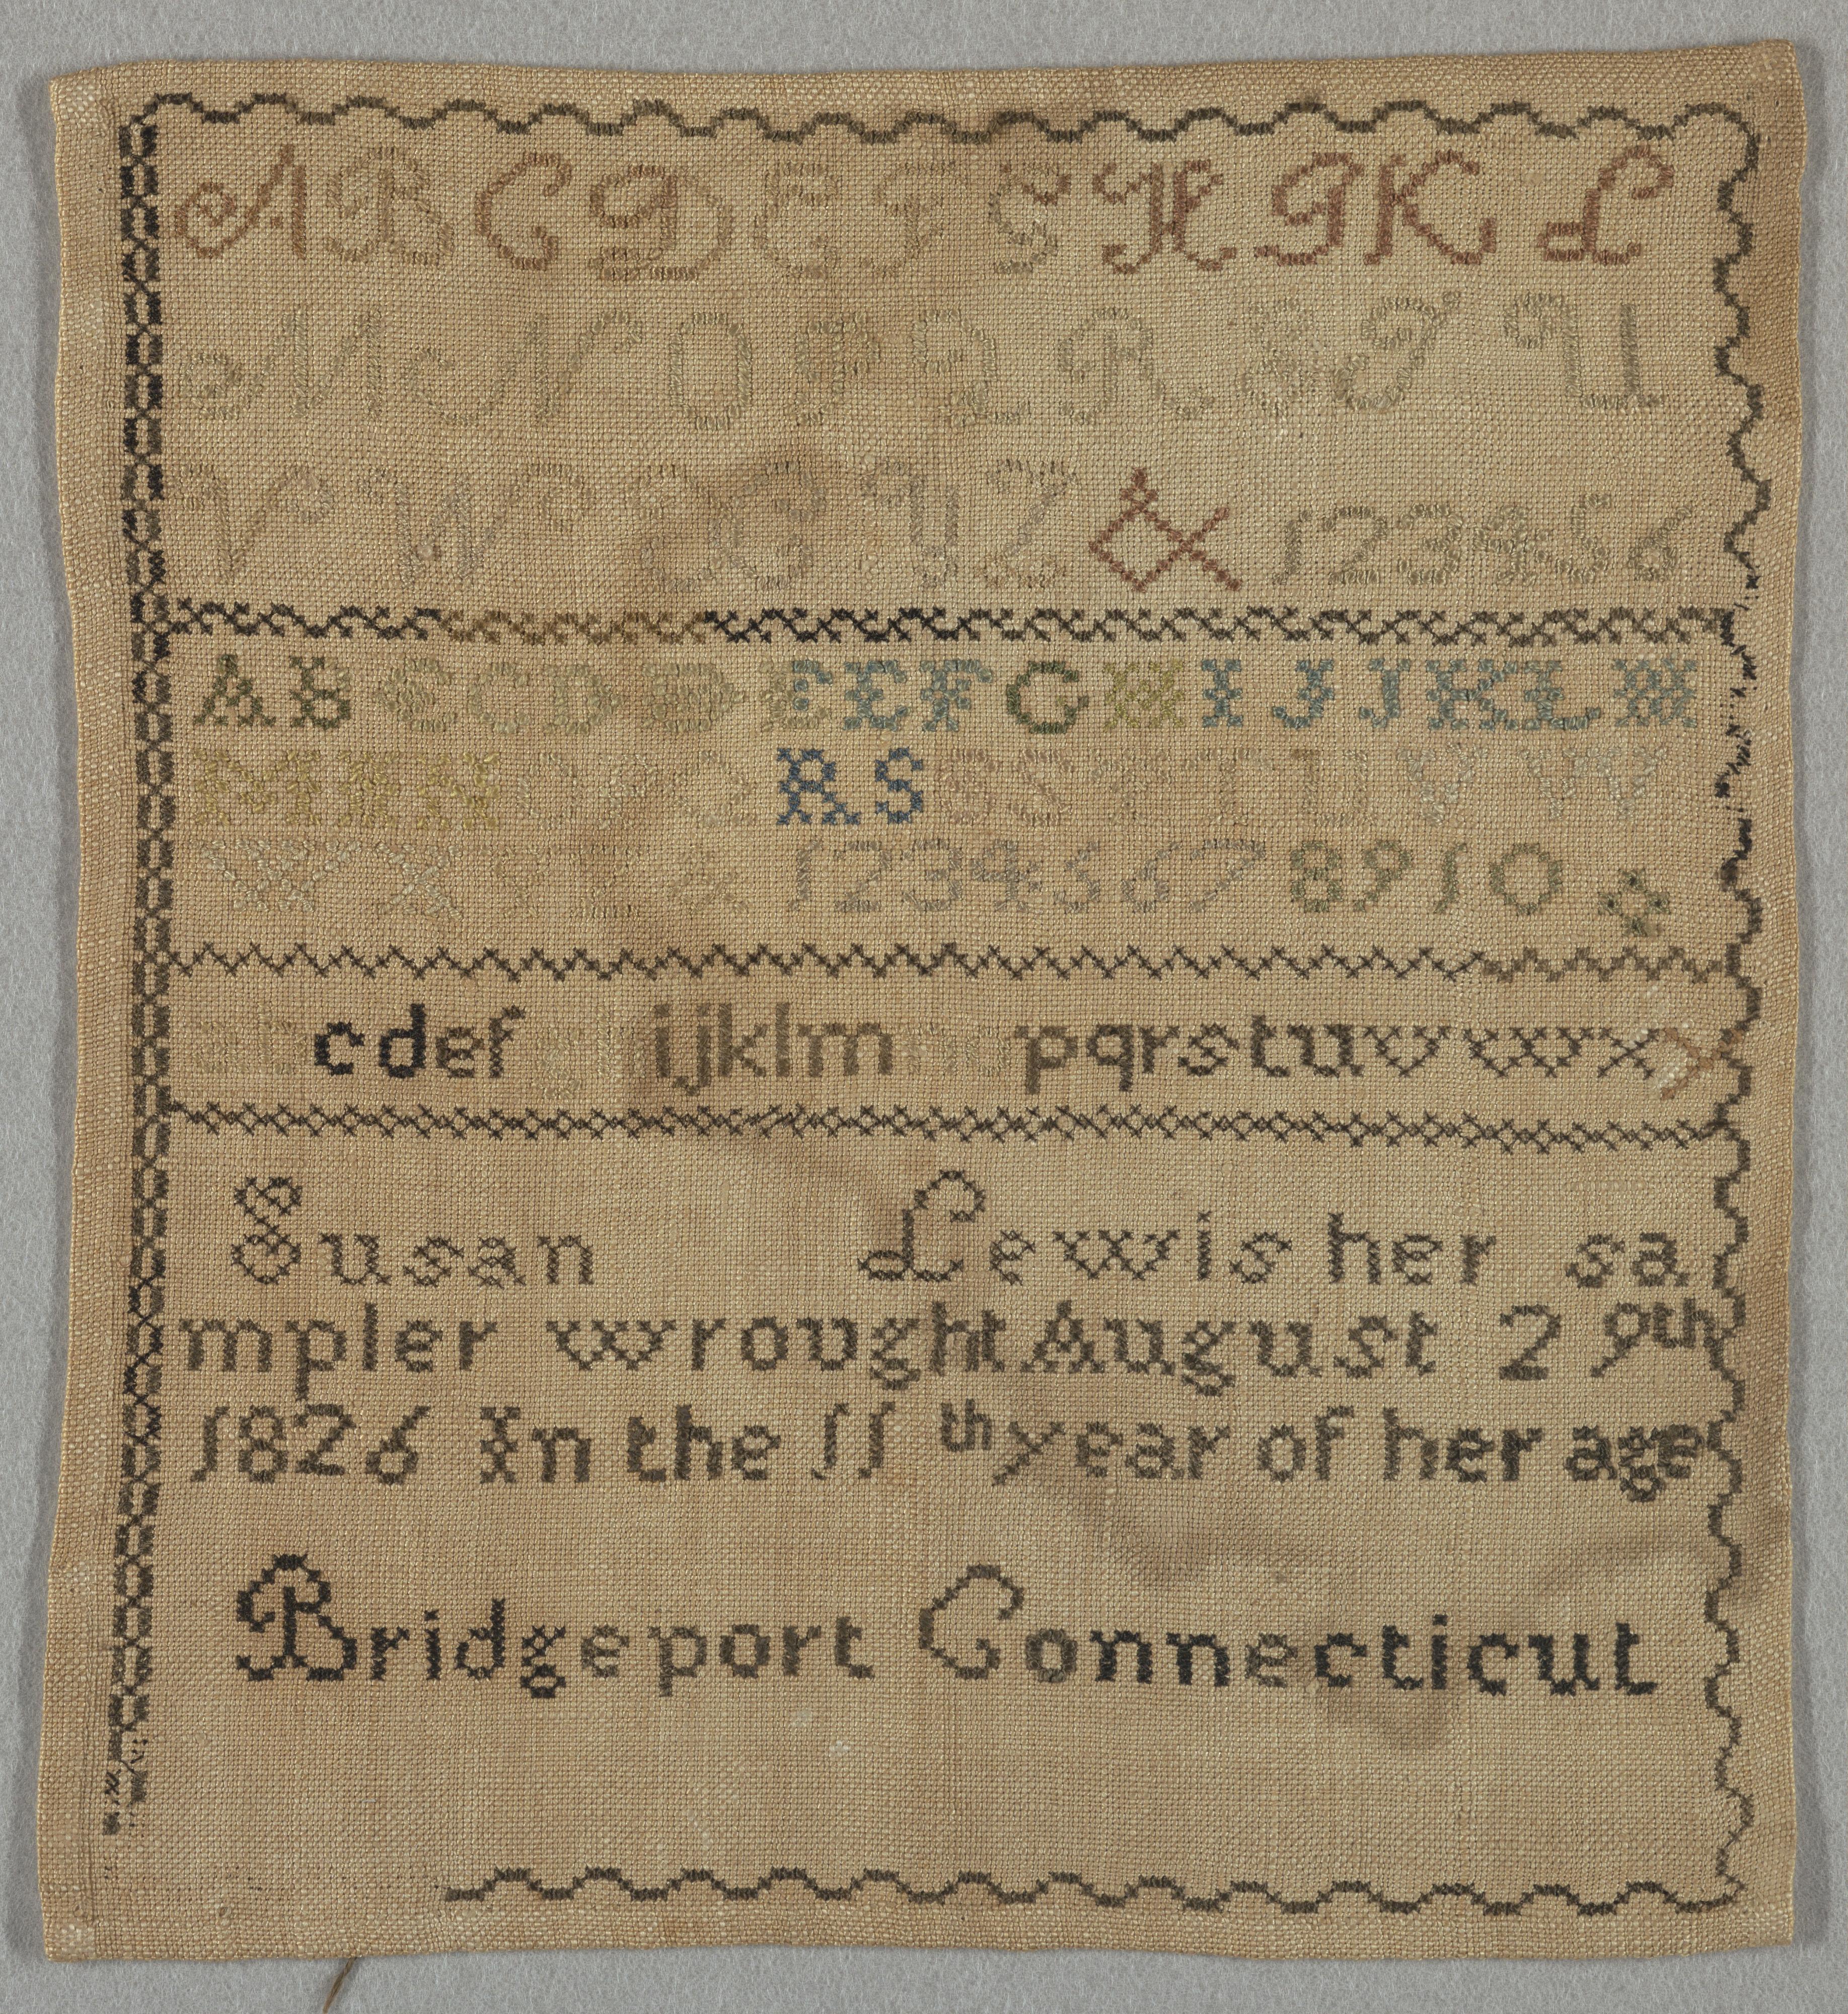 A B C D E F G H I K L
M N O P Q R S T U
V W X Y Z & 1 2 3 4 5 6
A B C C D D E E F G H I J J K L M
M N O P Q R S S T U V W
W X Y Z & 1 2 3 4 5 6 7 8 9 1 0
a b c d e f g h i j k l m n o p q r s t u v w x y
Susan Lewis her sa
mpler wrought August 29th
1826 In the 11th year of her age
Bridgeport Connecticut